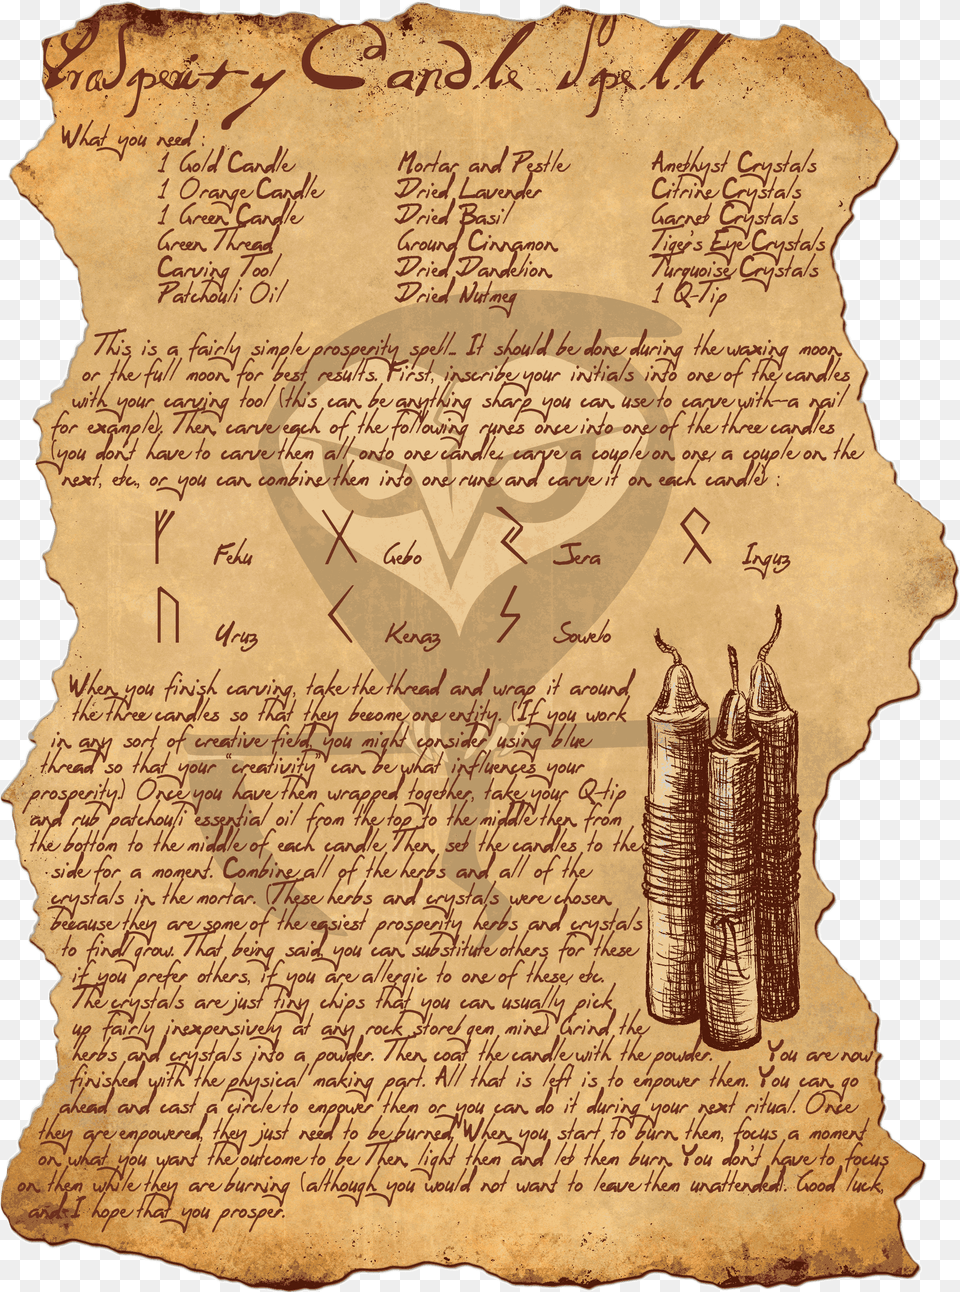 Prosperity Candle Spell
What you need :
1 Gold Candle
1 Orange Candle
1 Green Candle
Green Thread
Carving Tool
Patchouli Oil
Mortar and Pestle
Dried Lavender
Dried Basil
Ground Cinnamon
Dried Dandelion
Dried Nutmeg
Amethyst Crystals
Citrine Crystals
Garnet Crystals
Tiger's Eye Crystals
Turquoise Crystals
1 Q-Tip
This is a fairly simple prosperity spell... It should be done during the waxing moon
or the full moon for best results. First, inscribe your initials into one of the candles
with your carving tool (this can be anything sharp you can use to carve with--a nail
for example). Then carve each of the following runes once into one of the three candles
(you don't have to carve them all onto one candle, carve a couple on one, a couple on the
next, etc, or you can combine them into one rune and carve it on each candle) :
ᚠ Fehu
ᚷ Gebo
ᛃ Jera
ᛟ Inguz
ᚢ Uruz
ᚲ Kenaz
ᛊ Sowelo
When you finish carving, take the thread and wrap it around
the three candles so that they become one entity. (If you work
in any sort of creative field, you might consider using blue
thread so that your "creativity" can be what influences your
prosperity.) Once you have them wrapped together, take your Q-tip
and rub patchouli essential oil from the top to the middle then from
the bottom to the middle of each candle. Then, set the candles to the
side for a moment. Combine all of the herbs and all of the
crystals in the mortar. (These herbs and crystals were chosen
because they are some of the easiest prosperity herbs and crystals
to find/grow. That being said, you can substitute others for these
if you prefer others, if you are allergic to one of these, etc.
The crystals are just tiny chips that you can usually pick
up fairly inexpensively at any rock store/gem mine.) Grind the
herbs and crystals into a powder. Then coat the candle with the powder. You are now
finished with the physical making part. All that is left is to empower them. You can go
ahead and cast a circle to empower them or you can do it during your next ritual. Once
they are empowered, they just need to be burned. When you start to burn them, focus a moment
on what you want the outcome to be. Then light them and let them burn. You don't have to focus
on them while they are burning (although you would not want to leave them unattended). Good luck,
and I hope that you prosper.